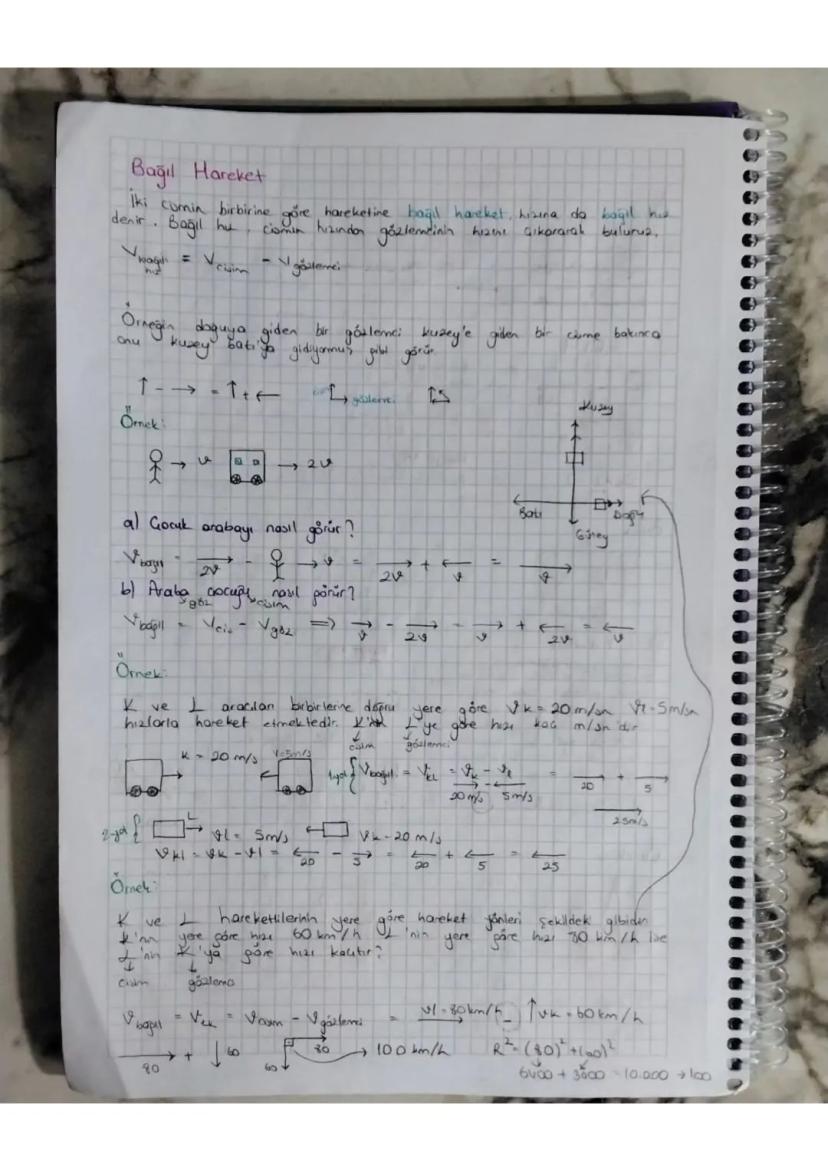 Bağıl Hareket
İki cismin birbirine göre hareketine bağıl hareket, hızına da bağıl hız
denir. Bağıl hız, cismin hızından gözlemcinin hızını çıkararak buluruz.
V bağıl hız = V cisim - V gözlemci
Örneğin doğuya giden bir gözlemci kuzey'e giden bir cisme bakınca
onu kuzey batı'ya gidiyormuş gibi görür
↑ - → = ↑ + ← gözlemci
Kuzey
Örnek:
→ v → 2v
Batı Doğu
Güney
a) Çocuk arabayı nasıl görür?
V bağıl = 2v - → v = 2v + v = v
b) Araba çocuğu nasıl görür?
göz cisim
V bağıl = V cis - V göz ⇒ v - 2v = v + 2v = v
Örnek:
K ve L aracıları birbirlerine doğru yere göre Vk = 20 m/sn Vl = 5m/sn
hızlarla hareket etmektedir. K'nın L'ye göre hızı kaç m/sn'dir
cisim gözlemci
K = 20 m/s V=5m/s 1.yol { V bağıl = V KL = Vk - Vl = 20 + 5
20 m/s 5m/s
25m/s
2.yol { L Vl = 5m/s Vk = 20 m/s
Vkl = Vk - Vl = 20 - 5 = 20 + 5 = 25
Örnek:
K ve L hareketlilerinin yere göre hareket yönleri şekildek gibidir
K'nın yere göre hızı 60 km/h L'nin yere göre hızı 80 km/h ise
L'nin K'ya göre hızı kaçtır?
cisim gözlemci
V bağıl = V LK = V cisim - V gözlemci = Vl = 80km/h - ↑ Vk = 60 km/h
80 + ↓ 60 60 80 → 100 km/h R² = (80)² + (60)²
6400 + 3600 = 10.000 → 100